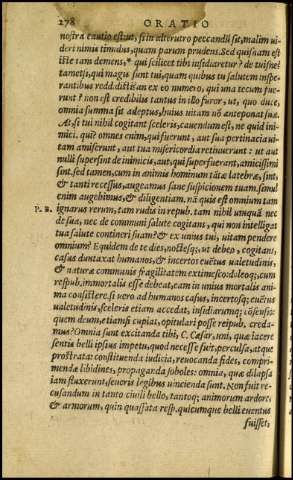 278 ORATIO
nostra cautio est: ut, si in alterutro peccandū sit, malim ui-
deri nimis timidus, quam parum prudens. Sed quisnam est
iste tam demens, * qui scilicet tibi insidiaretur? de tuisne?
tametsi, qui magis sunt tui, quam quibus tu salutem inspe-
rantibus reddidisti? an ex eo numero, qui una tecum fue-
runt? non est credibilis tantus in illo furor, ut, quo duce,
omnia summa sit adeptus, huius uitam nō anteponat suæ.
At, si tui nihil cogitant sceleris, cauendum est, ne quid inimi-
mici. qui? omnes enim, qui fuerunt, aut sua pertinacia ui-
tam amiserunt, aut tua misericordia retinuerunt: ut aut
nulli supersint de inimicis, aut, qui superfuerunt, amicissimi
sint. sed tamen, cum in animis hominum tātæ latebræ sint,
& tanti recessus, augeamus sane suspicionem tuam. simul
enim augebimus, & diligentiam. nā quis est omnium tam
P. R. ignarus rerum, tam rudis in repub. tam nihil unquā nec
de sua, nec de communi salute cogitans, qui non intelligat
tua salute contineri suam? & ex unius tui, uitam pendere
omnium? Equidem de te dies, noctesq́; ut debeo, cogitans,
casus duntaxat humanos, & incertos euētus ualetudinis,
& naturæ communis fragilitatem extimesco: doleoq́; cum
respub. immortalis esse debeat, eam in unius mortalis ani-
ma consistere. si uero ad humanos casus, incertosq́; euētus
ualetudinis, sceleris etiam accedat, insidiarumq́; cōsensio:
quem deum, etiam si cupiat, opitulari posse reipub. creda-
mus? Omnia sunt excitanda tibi, C. Cæsar, uni, quæ iacere
sentis belli ipsius impetu, quod necesse fuit, perculsa, atque
prostrata: constituenda iudicia, reuocanda fides, compri-
mendæ libidines, propaganda soboles: omnia, quæ dilapsa
iam fluxerunt, seueris legibus uincienda sunt. Non fuit re-
cusandum in tanto ciuili bello, tantoq́; animorum ardore,
& armorum, quin quassata resp. quicumque belli euentus
fuisset,